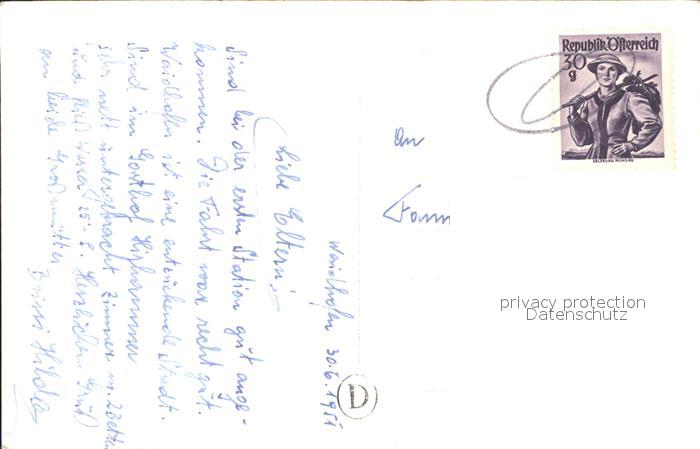 Waidhofen 30.6.1951
Liebe Eltern!
Sind bei der ersten Station gut ange-
kommen. Die Fahrt war recht gut.
Waidhofen ist eine entzückende Stadt.
Sind im Gasthof
sehr nett untergebracht Zimmer m. 2 Betten
und 25.- S. Herzlichen Gruß
an beide Großmütter
Hilda
An
Fam
Republik Österreich
30
g
SALZBURG PONGAU
D
privacy protection
Datenschutz